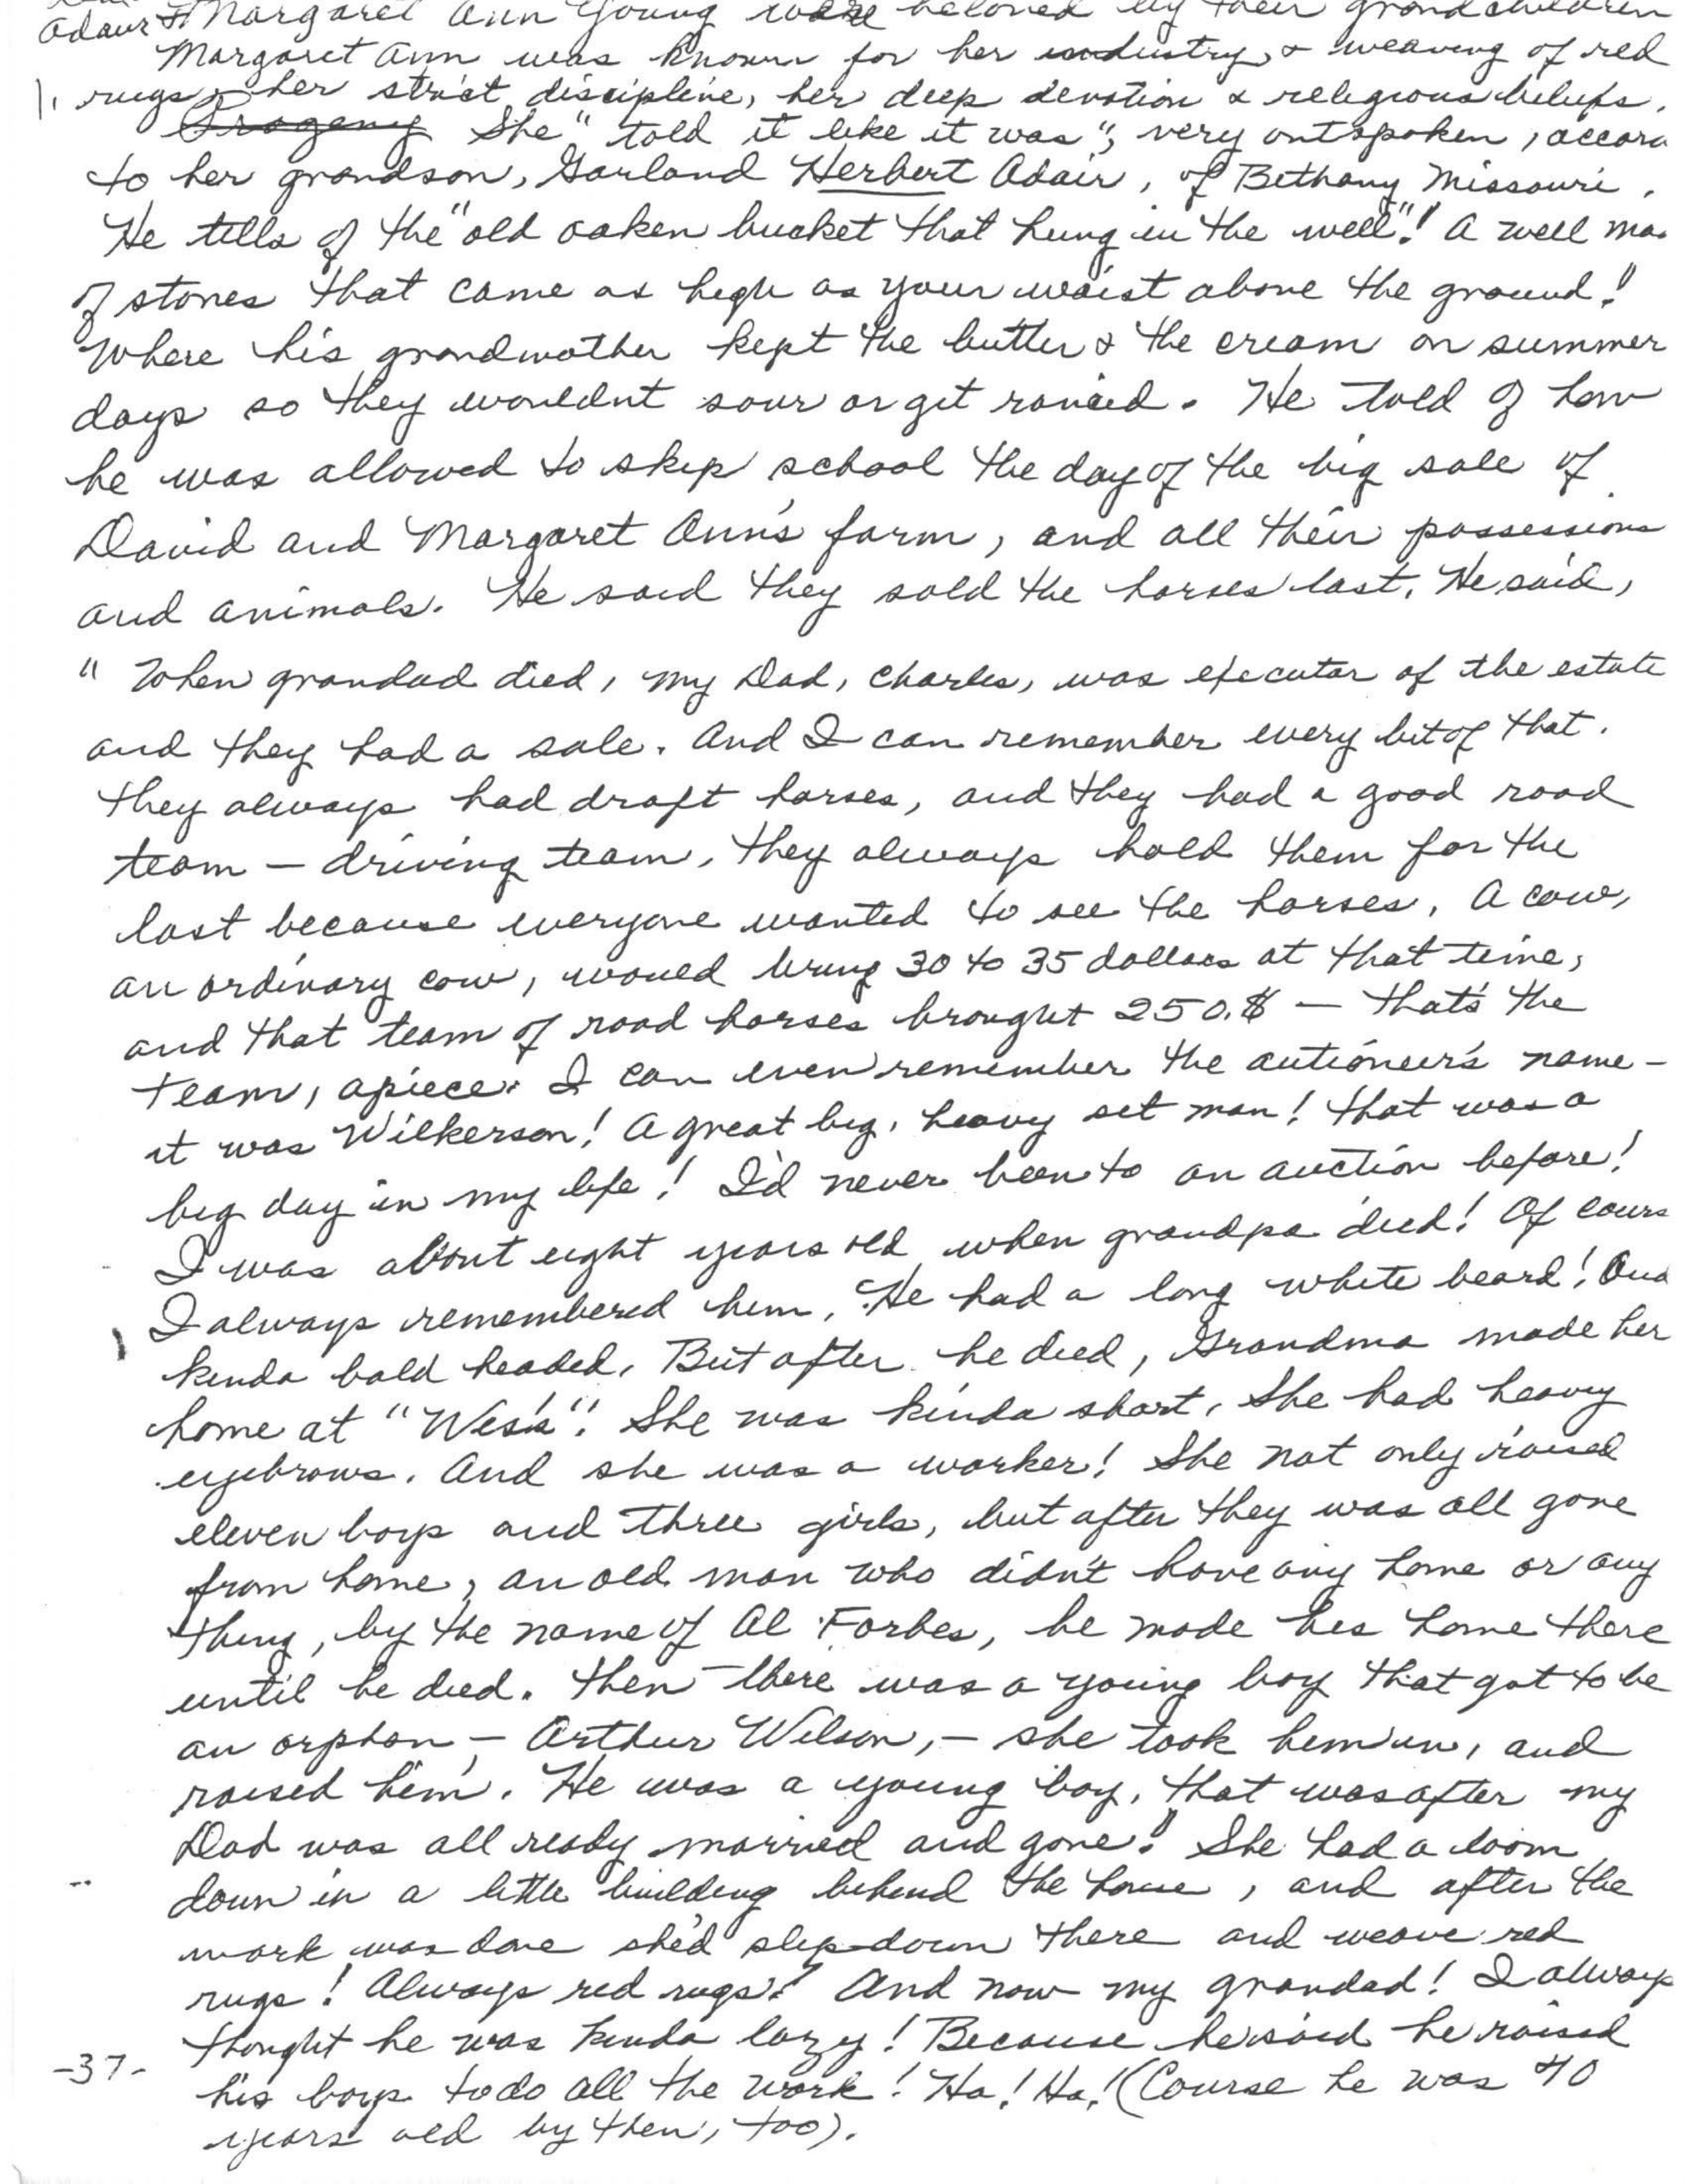 Adair & Margaret Ann Young were beloved by their grandchildren
Margaret Ann was known for her industry, & weaving of red
rugs, her strict discipline, her deep devotion & religious beliefs.
Progeny She "told it like it was", very outspoken, accord
to her grandson, Garland Herbert Adair, of Bethany Missouri.
He tells of the "old oaken bucket that hung in the well"! A well ma
of stones that came as high as your waist above the ground!
Where his grandmother kept the butter & the cream on summer
days so they wouldnt sour or get rancid. He told of how
he was allowed to skip school the day of the big sale of
David and Margaret Ann's farm, and all their possessions
and animals. He said they sold the horses last. He said,
" When grandad died, my Dad, Charles, was executor of the estate
and they had a sale. And I can remember every bit of that.
They always had draft horses, and they had a good road
team — driving team. They always hold them for the
last because everyone wanted to see the horses. A cow,
an ordinary cow, would bring 30 to 35 dollars at that time,
and that team of road horses brought 250.$ — that's the
team, apiece. I can even remember the autioneer's name -
it was Wilkerson! A great big, heavy set man! That was a
big day in my life! I'd never been to an auction before!
I was about eight years old when grandpa died! Of cours
I always remembered him. He had a long white beard! And
kinda bald headed. But after he died, Grandma made her
home at "Wes's". She was kinda short, she had heavy
eyebrows. And she was a worker! She not only raised
eleven boys and three girls, but after they was all gone
from home, an old man who didn't have any home or any
thing, by the name of Al Forbes, he made his home there
until he died. Then there was a young boy that got to be
an orphan — Arthur Wilson, — she took him in, and
raised him. He was a young boy, that was after my
Dad was all ready married and gone." She had a loom
down in a little building behind the house, and after the
work was done she'd slip down there and weave red
rugs! Always red rugs! And now my grandad! I always
thought he was kinda lazy! Because he said he raised
-37- his boys to do all the work! Ha! Ha! (Course he was 70
years old by then, too).